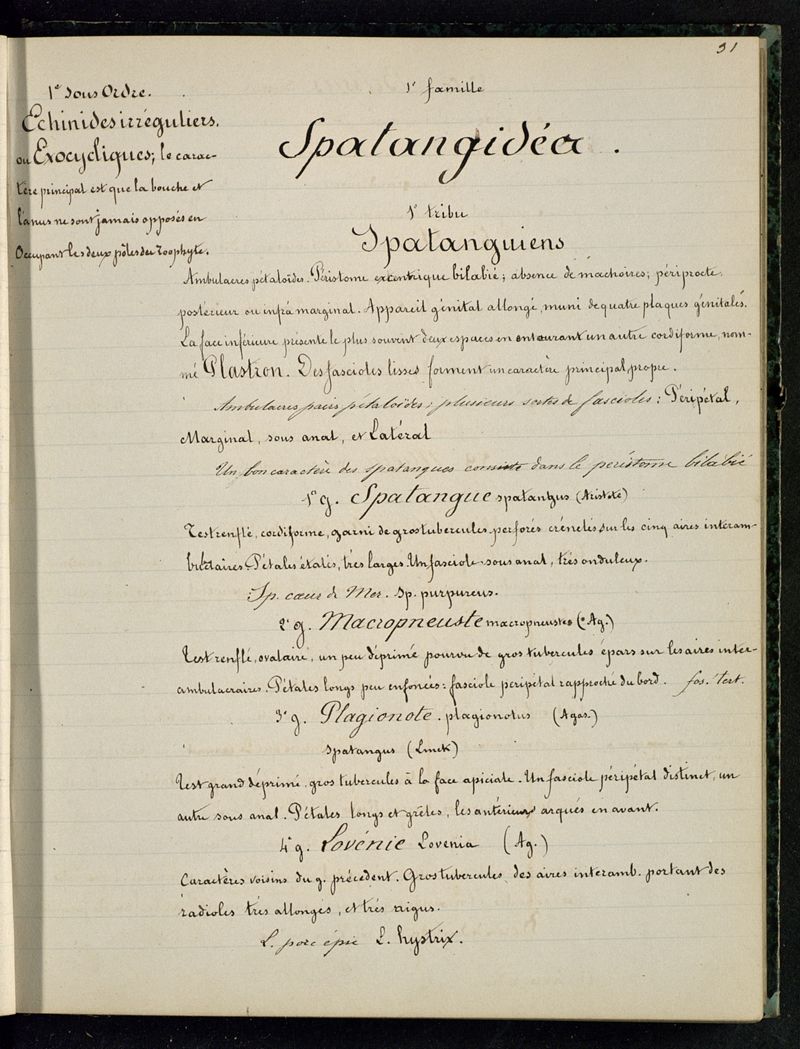 31
1r Sous Ordre.
Echinides irréguliers.
ou Exocycliques; le carac-
tère principal est que la bouche et
l'anus ne sont jamais opposés en
Occupant les deux pôles du Zoophyte.
1r famille
Spatangidéa.
1r tribu
Spatanguiens
Ambulacres pétaloïdes. Péristome excentrique bilabié; absence de machoires; périprocte
postérieur ou infra marginal. Appareil génital allongé, muni de quatre plaques génitales.
La face inférieure présente le plus souvent deux espaces en entourant un autre cordiforme, nom-
mé Plastron. Des fascioles lisses forment un caractère principal, propre.
Ambulacres pairs pétaloïdes; plusieurs sortes de fascioles: Péripétal,
Marginal, sous anal, et Latéral
Un bon caractère des spatangues consiste dans le péristome bilabié
1r g. Spatangue spatangus (Aristote)
Test renflé, cordiforme, garni de gros tubercules perforés crénelés sur les cinq aires interam-
bulaires. Pétales étalés, très larges. Un fasciole sous anal, très onduleux.
Sp. cœur de Mer. Sp. purpureus.
2e g. Macropneuste macropneustes (Ag.)
Test renflé, ovalaire, un peu déprimé pourvu de gros tubercules épars sur les aires inter-
ambulacraires. Pétales longs peu enfoncés: fasciole péripétal rapproché du bord. fos. tert.
3e g. Plagionote. plagionotus (Agas.)
Spatangus (Lmck)
Test grand déprimé, gros tubercules à la face apiciale. Un fasciole péripétal distinct, un
autre sous anal. Pétales longs et grêles, les antérieurs arqués en avant.
4e g. Lovénie Lovenia (Ag.)
Caractères voisins du g. précédent. Gros tubercules des aires interamb. portant des
radioles très allongés, et très aigus.
L. porc épic L. hystrix.